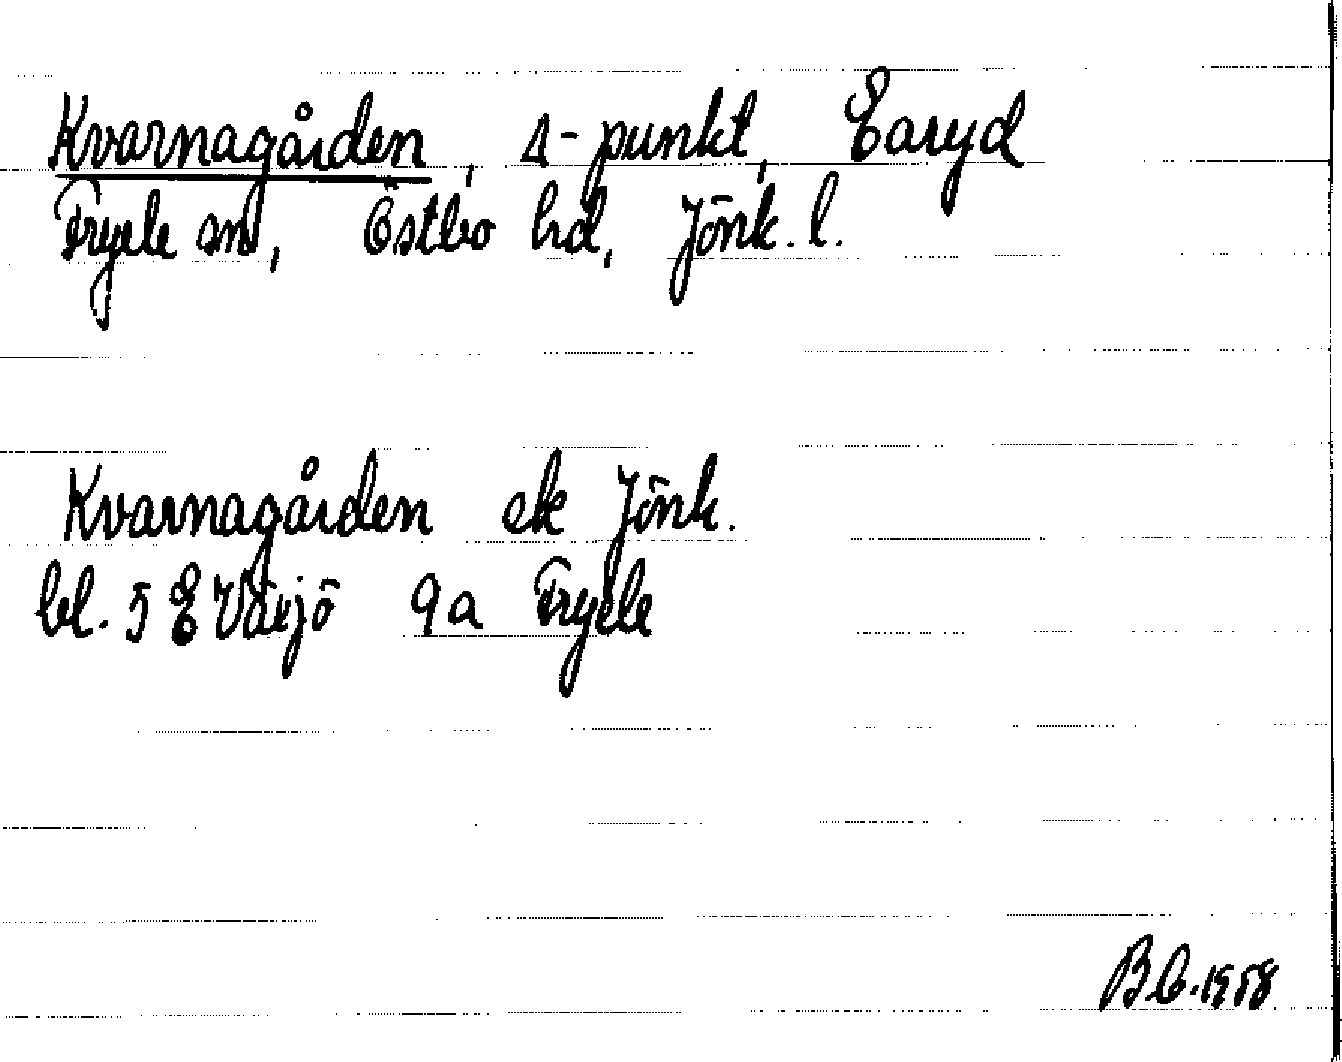 Kvarnagården, Δ-punkt, Earyd
Fryele sn, Östbo hd, Jönk. l.
Kvarnagården ek Jönk.
bl. 5 E Växjö 9a Fryele
B E. 1958